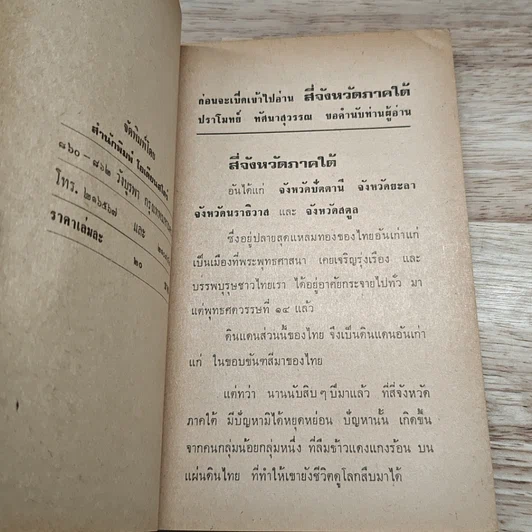 จัดพิมพ์โดย
สำนักพิมพ์ โอเดียนสโตร์
๘๖๐ - ๘๖๒ วังบูรพา กรุงเทพ
โทร. ๒๑๖๕๖๗ และ
ราคาเล่มละ ๒๐
ก่อนจะเบิดเข้าไปอ่าน สี่จังหวัดภาคใต้
ปราโมทย์ ทัศนาสุวรรณ ขอคำนับท่านผู้อ่าน
สี่จังหวัดภาคใต้
อันได้แก่ จังหวัดปัตตานี จังหวัดยะลา
จังหวัดนราธิวาส และ จังหวัดสตูล
ซึ่งอยู่ปลายสุดแหลมทองของไทยอันเก่าแก่
เป็นเมืองที่พระพุทธศาสนา เคยเจริญรุ่งเรือง และ
บรรพบุรุษชาวไทยเรา ได้อยู่อาศัยกระจายไปทั่ว มา
แต่พุทธศตวรรษที่ ๑๔ แล้ว
ดินแดนส่วนนี้ของไทย จึงเป็นดินแดนอันเก่า
แก่ ในขอบขัณฑสีมาของไทย
แต่ทว่า นานนับสิบ ๆ ปีมาแล้ว ที่สี่จังหวัด
ภาคใต้ มีปัญหามิได้หยุดหย่อน ปัญหานั้น เกิดขึ้น
จากคนกลุ่มน้อยกลุ่มหนึ่ง ที่ลืมข้าวแดงแกงร้อน บน
แผ่นดินไทย ที่ทำให้เขายังชีวิตดูโลกสืบมาได้